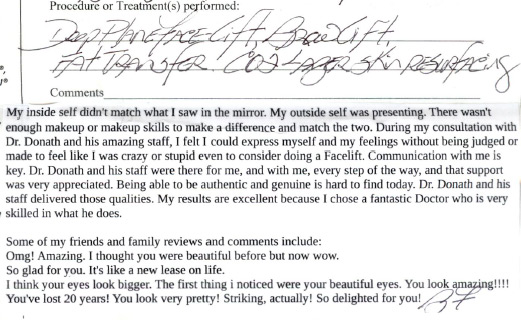 Procedure or Treatment(s) performed:
Deep Plane Face Lift, Brow Lift,
Fat Transfer CO2 Laser Skin Resurfacing
Comments
My inside self didn't match what I saw in the mirror. My outside self was presenting. There wasn't
enough makeup or makeup skills to make a difference and match the two. During my consultation with
Dr. Donath and his amazing staff, I felt I could express myself and my feelings without being judged or
made to feel like I was crazy or stupid even to consider doing a Facelift. Communication with me is
key. Dr. Donath and his staff were there for me, and with me, every step of the way, and that support
was very appreciated. Being able to be authentic and genuine is hard to find today. Dr. Donath and his
staff delivered those qualities. My results are excellent because I chose a fantastic Doctor who is very
skilled in what he does.
Some of my friends and family reviews and comments include:
Omg! Amazing. I thought you were beautiful before but now wow.
So glad for you. It's like a new lease on life.
I think your eyes look bigger. The first thing i noticed were your beautiful eyes. You look amazing!!!!
You've lost 20 years! You look very pretty! Striking, actually! So delighted for you!